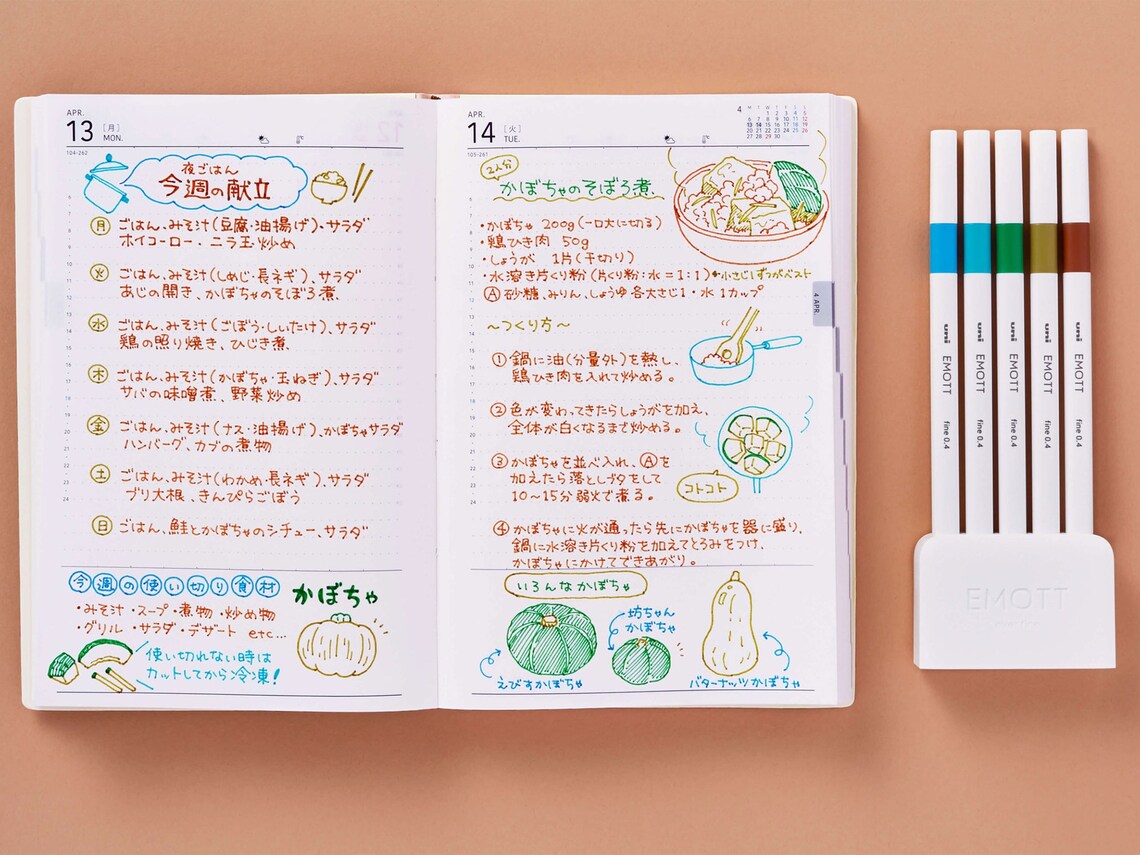 APR.
13 [月] MON.
104-262
夜ごはん
今週の献立
月 ごはん、みそ汁(豆腐・油揚げ)、サラダ
ホイコーロー、ニラ玉炒め
火 ごはん、みそ汁(しめじ・長ネギ)、サラダ
あじの開き、かぼちゃのそぼろ煮、
水 ごはん、みそ汁(ごぼう・しいたけ)、サラダ
鶏の照り焼き、ひじき煮
木 ごはん、みそ汁(かぼちゃ・玉ねぎ)、サラダ
サバの味噌煮、野菜炒め
金 ごはん、みそ汁(ナス・油揚げ)、かぼちゃサラダ
ハンバーグ、カブの煮物
土 ごはん、みそ汁(わかめ・長ネギ)、サラダ
ブリ大根、きんぴらごぼう
日 ごはん、鮭とかぼちゃのシチュー、サラダ
今週の使い切り食材
かぼちゃ
・みそ汁・スープ・煮物・炒め物
・グリル・サラダ・デザート etc...
使い切れない時は
カットしてから冷凍!
APR.
14 [火] TUE.
105-261
4 M T W T F S S
1 2 3 4 5
6 7 8 9 10 11 12
13 14 15 16 17 18 19
20 21 22 23 24 25 26
27 28 29 30
2人分
かぼちゃのそぼろ煮、
・かぼちゃ 200g(一口大に切る)
・鶏ひき肉 50g
・しょうが 1片(千切り)
・水溶き片くり粉(片くり粉:水=1:1)←小さじ1ずつがベスト
Ⓐ砂糖、みりん、しょうゆ各大さじ1・水1カップ
4 APR.
〜つくり方〜
①鍋に油(分量外)を熱し、
鶏ひき肉を入れて炒める。
②色が変わってきたらしょうがを加え、
全体が白くなるまで炒める。
③かぼちゃを並べ入れ、Ⓐを
加えたら落としブタをして
10〜15分弱火で煮る。
コトコト
④かぼちゃに火が通ったら先にかぼちゃを器に盛り、
鍋に水溶き片くり粉を加えてとろみをつけ、
かぼちゃにかけてできあがり。
いろんなかぼちゃ
坊ちゃん
かぼちゃ
えびすかぼちゃ
バターナッツかぼちゃ
uni EMOTT fine 0.4
uni EMOTT fine 0.4
uni EMOTT fine 0.4
uni EMOTT fine 0.4
uni EMOTT fine 0.4
EMOTT